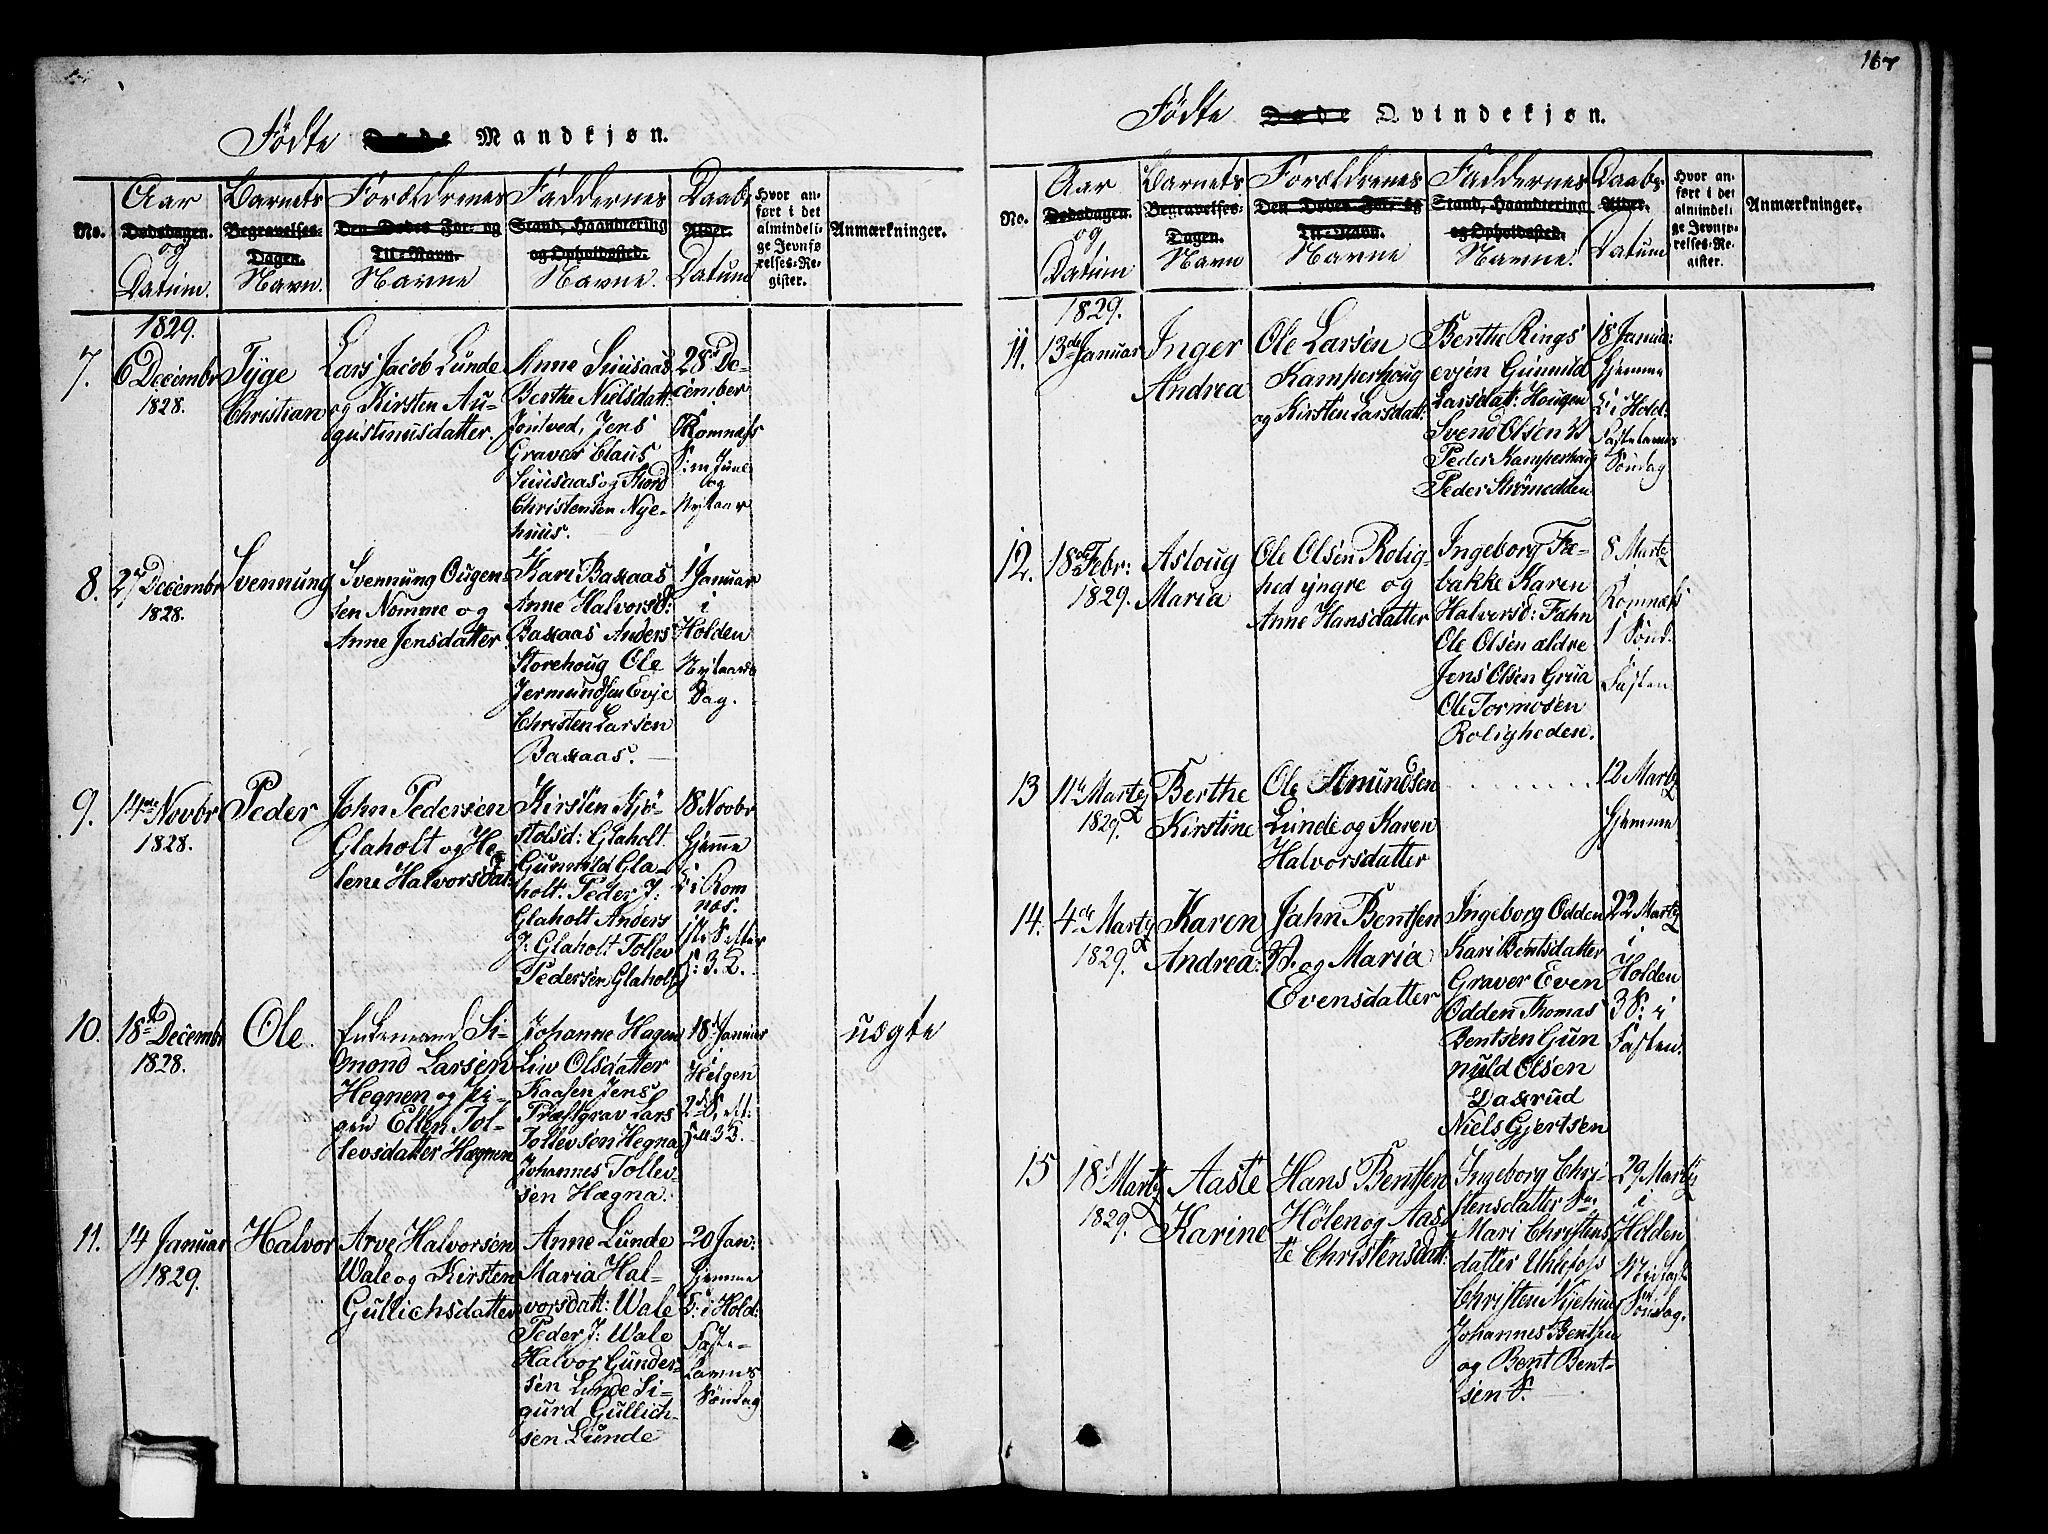 167
Fødte Døde Mandkjøn.
No.
Aar
Dødsdagen.
og
Datum.
Barnets
Begravelses-
Dagen.
Navn.
Forældrenes
Den Dødes For- og
Til-Navn.
Navne
Faddernes
Stand, Haandtering
og Opholdssted.
Navne.
Daabs
Alder.
Datum
Hvor an-
ført i det
almindeli-
ge Jevnfø
relses-Re-
gister.
Anmærkninger.
1829.
7.
6 Decembr
1828.
Tyge
Christian
Lars Jacob Lunde
og Kirsten Au-
gustinusdatter.
Anne Suusaas
Berthe Nielsdatt:
Jontved, Jens
Graver Claus
Suusaas og Thord
Christensen Nye-
huus.
28 De-
cember
Romnæss
S: m: Jule
og
Nytaar
8.
27 Decembr
1828.
Svennung
Svennung Ougen-
sen Nomme og
Anne Jensdatter.
Kari Baxaas
Anne Halvorsd:
Baxaas Anders
Storehoug Ole
Jermundsen Evje
Christen Larsen
Baxaas.
1 Januar
i
Holden
Nytaars
Dag.
9.
14de Novbr
1828.
Peder
John Pedersen
Glaholt og He-
lene Halvorsdat:
Kirsten Kjø-
stolsd: Glaholt
Gunuld Gla-
holt. Peder J:
Glaholt Anders
J: Glaholt Tollev
Pedersen Glaholt
18 Novbr
Hjemme
i Rom
næs.
10.
18de Decembr
1828.
Ole.
Enkemand Si-
mond Larsen
Hegnen og Pi-
gen Ellen Tol-
levsdatter Hægnen
Johanne Hagen
Liv Olsdatter
Kaasen Jens
Præstgrav Lars
Tollevsen Hegna
Johannes Tollev-
sen Hægna.
18 Januar
Helgen
2d S. eft:
H: 3 K.
uægte
11.
14 Januar
1829.
Halvor
Arve Halvorsen
Wale og Kirsten
Gullichsdatter
Anne Lunde
Maria Hal-
vorsdatt: Wale
Peder J: Wale
Halvor Gunder-
sen Lunde Si-
gurd Gullich-
sen Lunde
20 Jan:
Hjemme
i Hold:
Faste-
lavns
Søndag
Fødte Døde Qvindekjøn.
No.
Aar
Dødsdagen.
og
Datum
Barnets
Begravelses-
Dagen.
Navn
Forældrenes
Den Dødes For- og
Til-Navn.
Navne
Faddernes
Stand, Haandtering
og Opholdssted.
Navne.
Daabs
Alder.
Datum
Hvor an-
ført i det
almindeli-
ge Jevnfø-
relses-Re-
gister.
Anmærkninger.
1829.
11.
13de Januar
Inger
Andrea
Ole Larsen
Kamperhoug
og Kirsten Larsdatt:
Berthe Rings
evjen Gunuld
Larsdat: Hougen
Svend Olsen
Peder Kamperhoug
Peder Strømodden
18 Janua:
Hjemme
i Hold:
Fastelavns
Søndag
12.
18de Febr:
1829.
Asloug
Maria
Ole Olsen Rolig-
hed yngre og
Anne Hansdatter
Ingeborg Fæ-
bakke Karen
Halversd: Fahn
Ole Olsen ældre
Jens Olsen Grua
Ole Tormosen
Roligheden.
8 Marty
Romnæss
1 Sønd.
Fasten
13
11te Marty
1829.
Berthe
Kirstine
Ole Amundsen
Lunde og Karen
Halvorsdatter
12 Marty
Hjemme
14.
4de Marty
1829.
Karen
Andrea:
Jahn Bentsen
og Maria
Evensdatter
Ingeborg Odden
Kari Bentsdatter
Graver Even
Odden Thomas
Bentsen Gun
nuld Olsen
Daxrud
Niels Gjertsen
22 Marty
i
Holden
3 S: i
Fasten.
15
18d Marty
1829.
Aaste
Karine
Hans Bentsen
Hølen og Aas-
te Christensdatt:
Ingeborg Chri-
stensdatter
Mari Christens
datter Uhlefoss
Christen Nyehuus
Johannes Bentsen
og Bent Bent-
sen S.
29 Marty
i
Holden
Midfaste
Søndag.